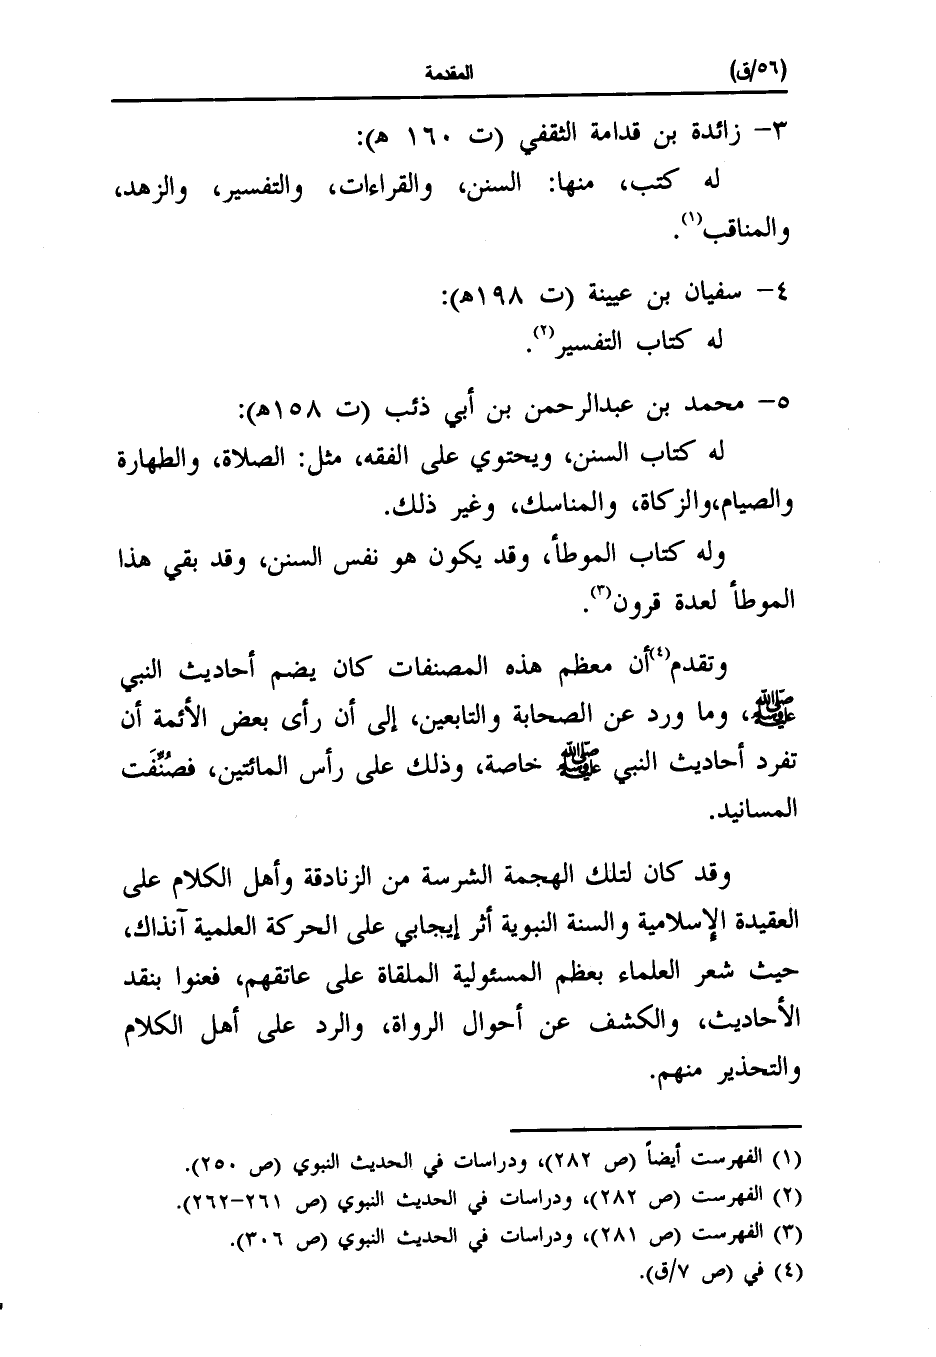 (٥٦/ق) المقدمة
٣- زائدة بن قدامة الثقفي (ت ١٦٠ هـ):
له كتب، منها: السنن، والقراءات، والتفسير، والزهد،
والمناقب(١).
٤- سفيان بن عيينة (ت ١٩٨هـ):
له كتاب التفسير(٢).
٥- محمد بن عبدالرحمن بن أبي ذئب (ت ١٥٨هـ):
له كتاب السنن، ويحتوي على الفقه، مثل: الصلاة، والطهارة
والصيام،والزكاة، والمناسك، وغير ذلك.
وله كتاب الموطأ، وقد يكون هو نفس السنن، وقد بقي هذا
الموطأ لعدة قرون(٣).
وتقدم(٤)أن معظم هذه المصنفات كان يضم أحاديث النبي
ﷺ، وما ورد عن الصحابة والتابعين، إلى أن رأى بعض الأئمة أن
تفرد أحاديث النبي ﷺ خاصة، وذلك على رأس المائتين، فصُنِّفَت
المسانيد.
وقد كان لتلك الهجمة الشرسة من الزنادقة وأهل الكلام على
العقيدة الإسلامية والسنة النبوية أثر إيجابي على الحركة العلمية آنذاك،
حيث شعر العلماء بعظم المسئولية الملقاة على عاتقهم، فعنوا بنقد
الأحاديث، والكشف عن أحوال الرواة، والرد على أهل الكلام
والتحذير منهم.
(١) الفهرست أيضاً (ص ٢٨٢)، ودراسات في الحديث النبوي (ص ٢٥٠).
(٢) الفهرست (ص ٢٨٢)، ودراسات في الحديث النبوي (ص ٢٦١-٢٦٢).
(٣) الفهرست (ص ٢٨١)، ودراسات في الحديث النبوي (ص ٣٠٦).
(٤) في (ص ٧/ق).